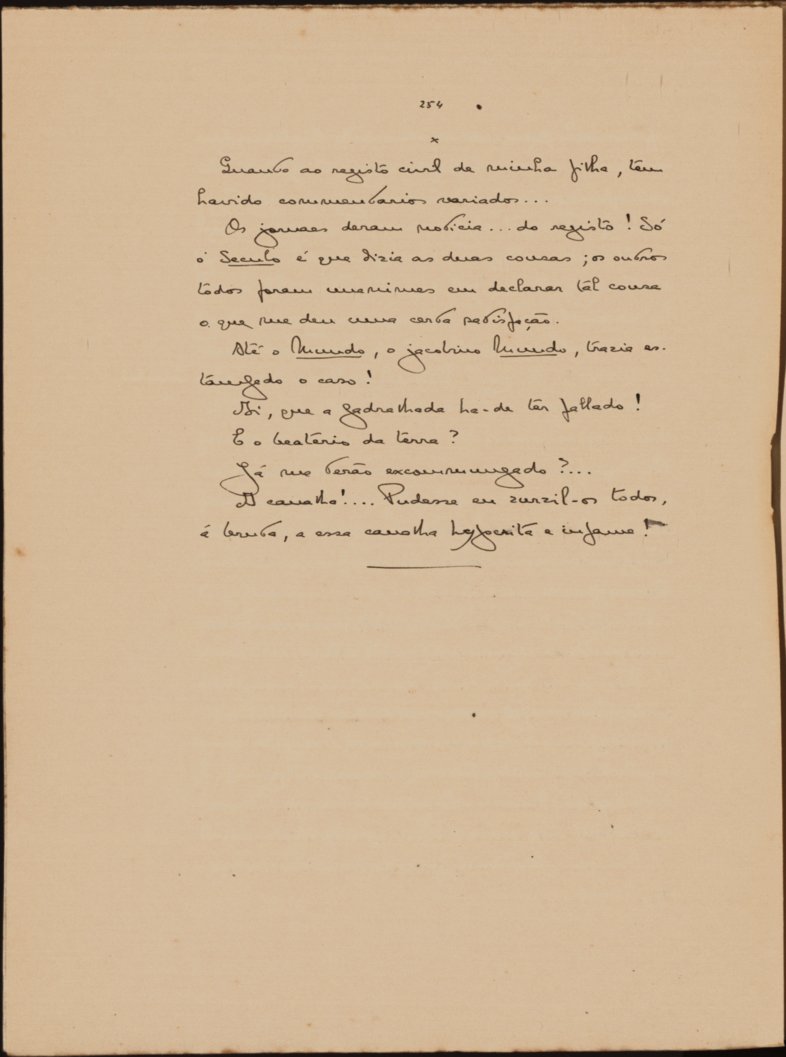 254
x
Quanto ao registo civil de minha filha, tem
havido commentarios variados...
Os jornaes deram noticia... do registo! Só
o Seculo é que dizia as duas cousas; os outros
todos foram unanimes em declarar tal cousa
o que me deu uma certa satisfação.
Até o Mundo, o jacobino Mundo, trazia es-
tampado o caso!
Ai, que a padralhada ha-de ter fallado!
E o beaterio da terra?
Já me terão excommungado?...
A canalha!... Pudesse eu zurzil-os todos,
á bruta, a essa canalha hypocrita e infame!